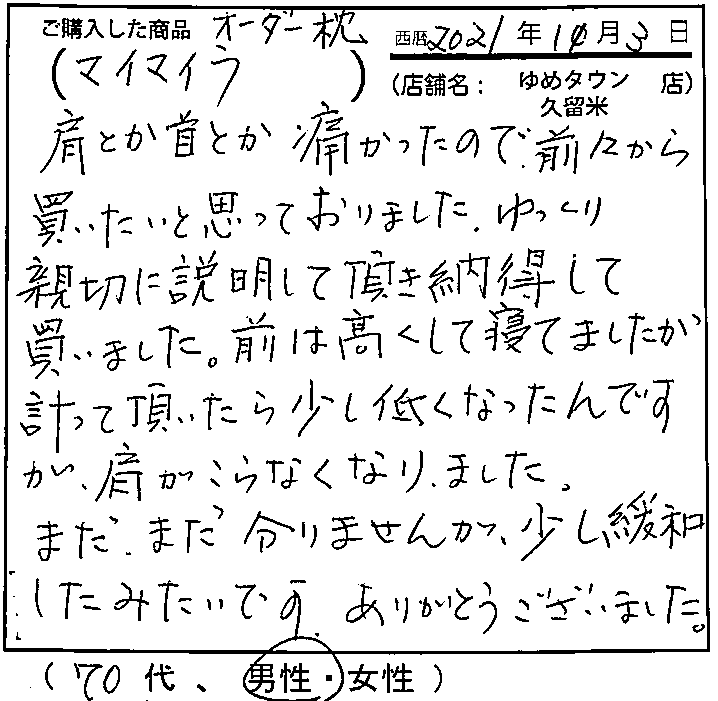 ご購入した商品 オーダー枕
西暦2021年10月3日
(マイマイラ)
(店舗名: ゆめタウン久留米 店)
肩とか首とか 痛かったので、前々から
買いたいと思っておりました。ゆっくり
親切に説明して頂き納得して
買いました。前は高くして寝てましたが
計って頂いたら少し低くなったんです
が、肩がこらなくなりました。
まだ、まだ分りませんが、少し緩和
したみたいです。ありがとうございました。
(70代、男性・女性)